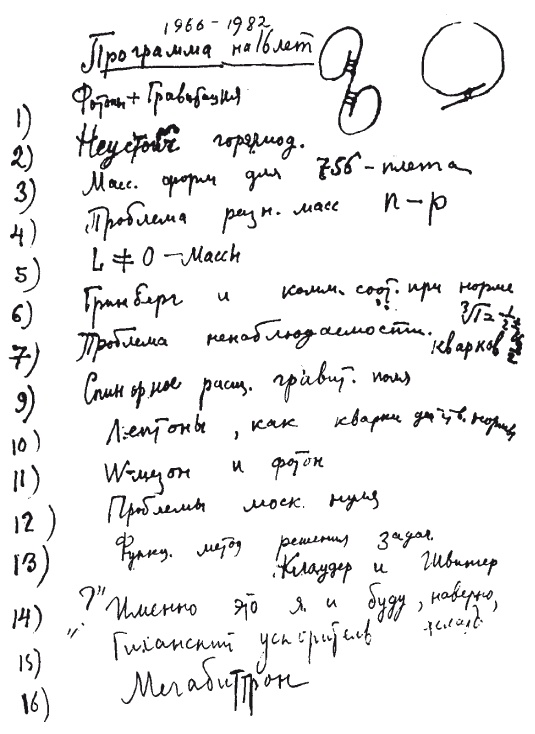 1966-1982
Программа на 16 лет
1) Фотоны + Гравитация
2) Неустойч гормпод.
3) Масс. форм для 756-плета
4) Проблема разн. масс n-p
5) L ≠ 0 - Массы
6) Гринберг и комм. соот. при норме
7) Проблема ненаблюдаемости. кварков
9) Спинорное расщ. гравит. поля
10) Лептоны, как кварки
11) W-мезон и фотон
12) Проблемы моск. нуля
13) Функц. метод решения задач.
Клаудер и Швингер
14) "?" Именно это я и буду, наверно,
15) Гиханский ускоритель
16) Мегабиттрон